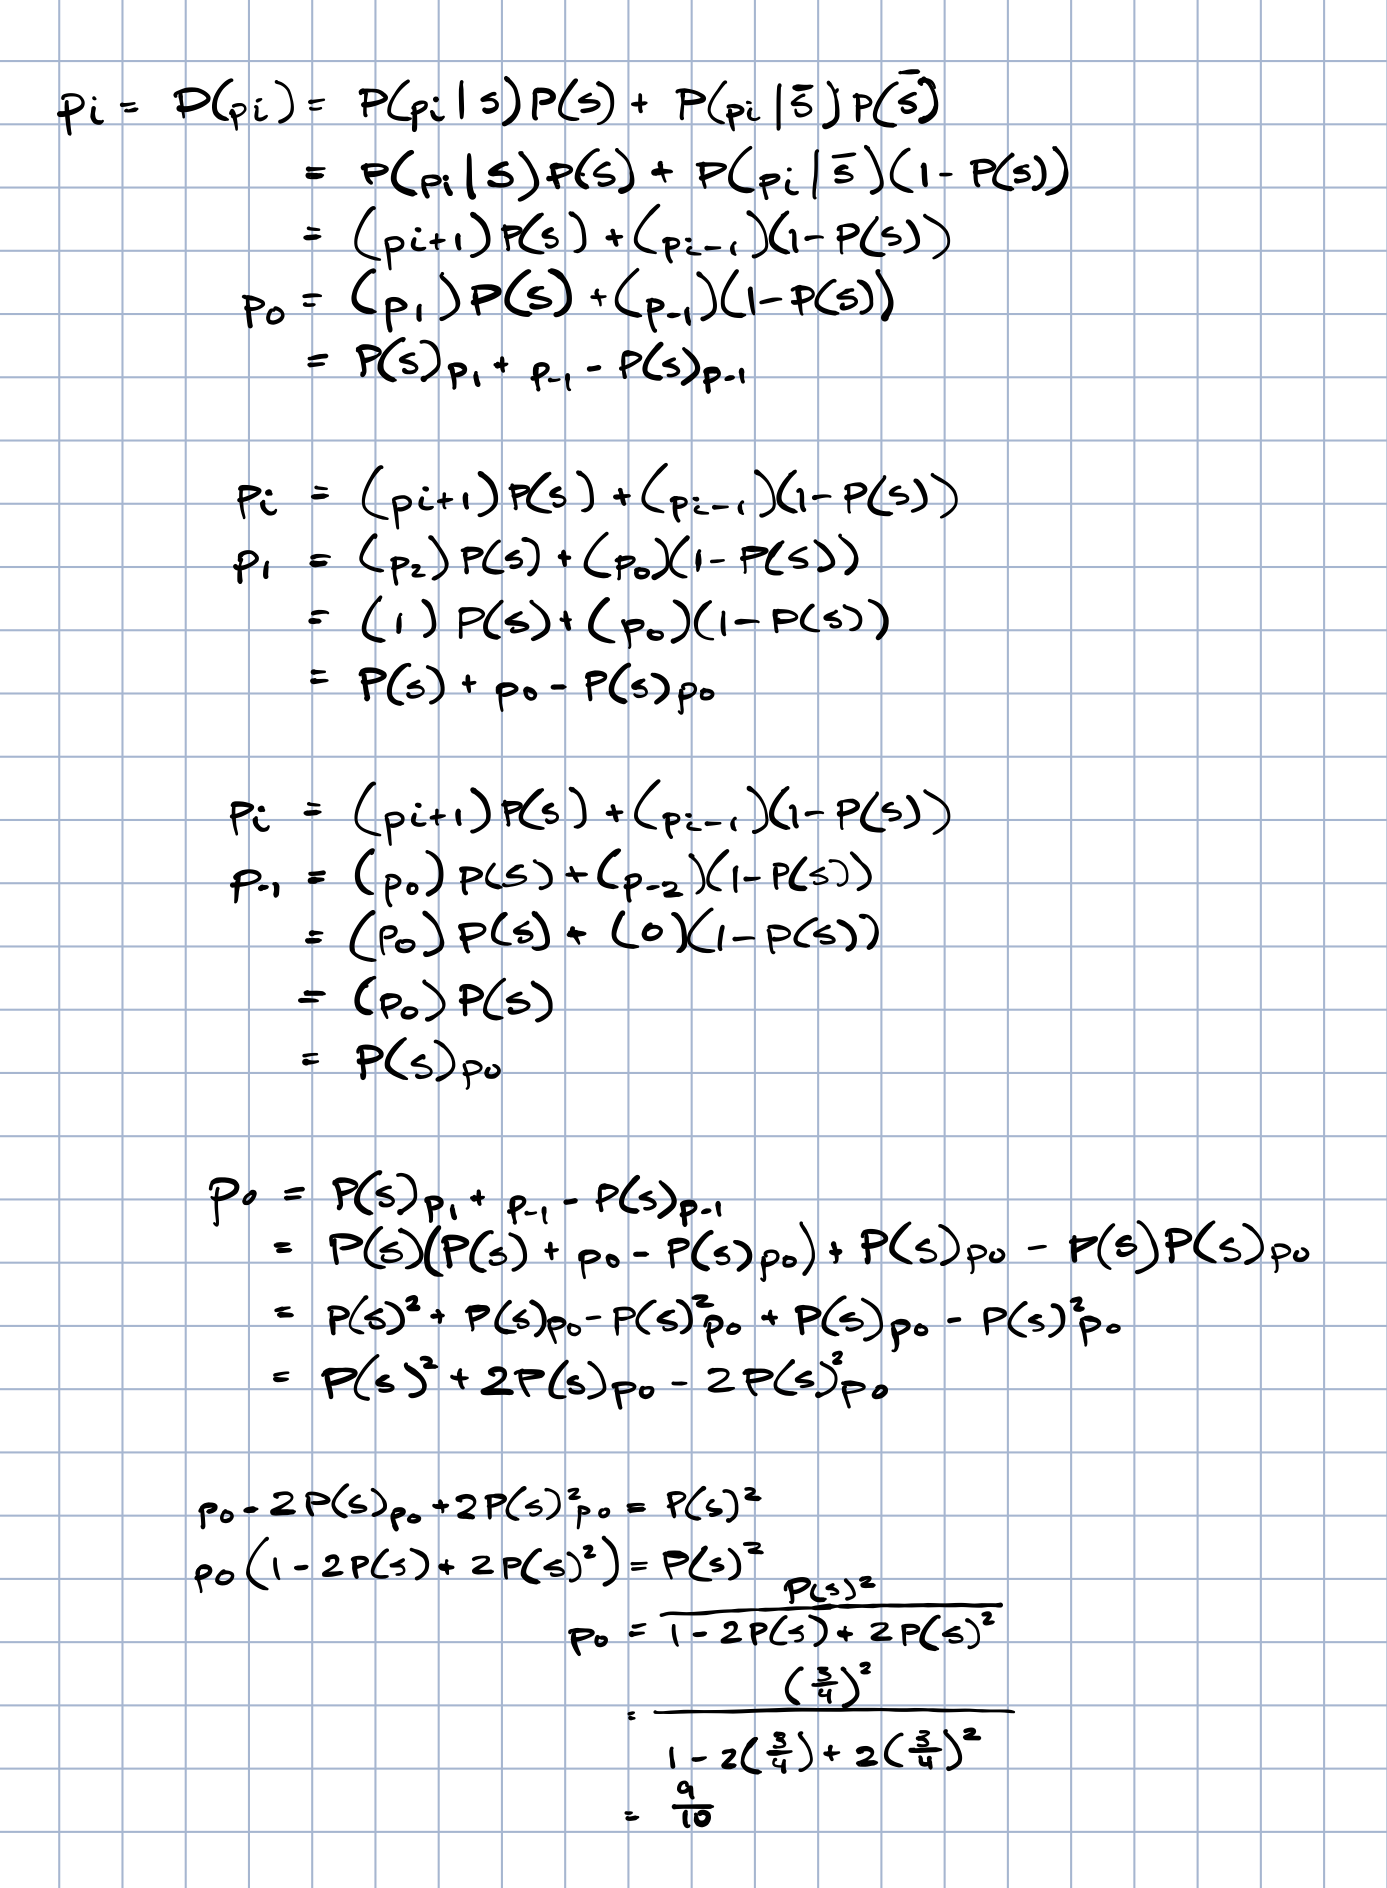 pi = P(pi) = P(pi|s)P(s) + P(pi|s̅)P(s̅)
= P(pi|s)P(s) + P(pi|s̅)(1-P(s))
= (pi+1)P(s) + (pi-1)(1-P(s))
p0 = (p1)P(s) + (p-1)(1-P(s))
= P(s)p1 + p-1 - P(s)p-1
pi = (pi+1)P(s) + (pi-1)(1-P(s))
p1 = (p2)P(s) + (p0)(1-P(s))
= (1)P(s) + (p0)(1-P(s))
= P(s) + p0 - P(s)p0
pi = (pi+1)P(s) + (pi-1)(1-P(s))
p-1 = (p0)P(s) + (p-2)(1-P(s))
= (p0)P(s) + (0)(1-P(s))
= (p0)P(s)
= P(s)p0
p0 = P(s)p1 + p-1 - P(s)p-1
= P(s)(P(s) + p0 - P(s)p0) + P(s)p0 - P(s)P(s)p0
= P(s)² + P(s)p0 - P(s)²p0 + P(s)p0 - P(s)²p0
= P(s)² + 2P(s)p0 - 2P(s)²p0
p0 - 2P(s)p0 + 2P(s)²p0 = P(s)²
p0(1 - 2P(s) + 2P(s)²) = P(s)²
p0 = P(s)² / 1 - 2P(s) + 2P(s)²
= (3/4)² / 1 - 2(3/4) + 2(3/4)²
= 9/10